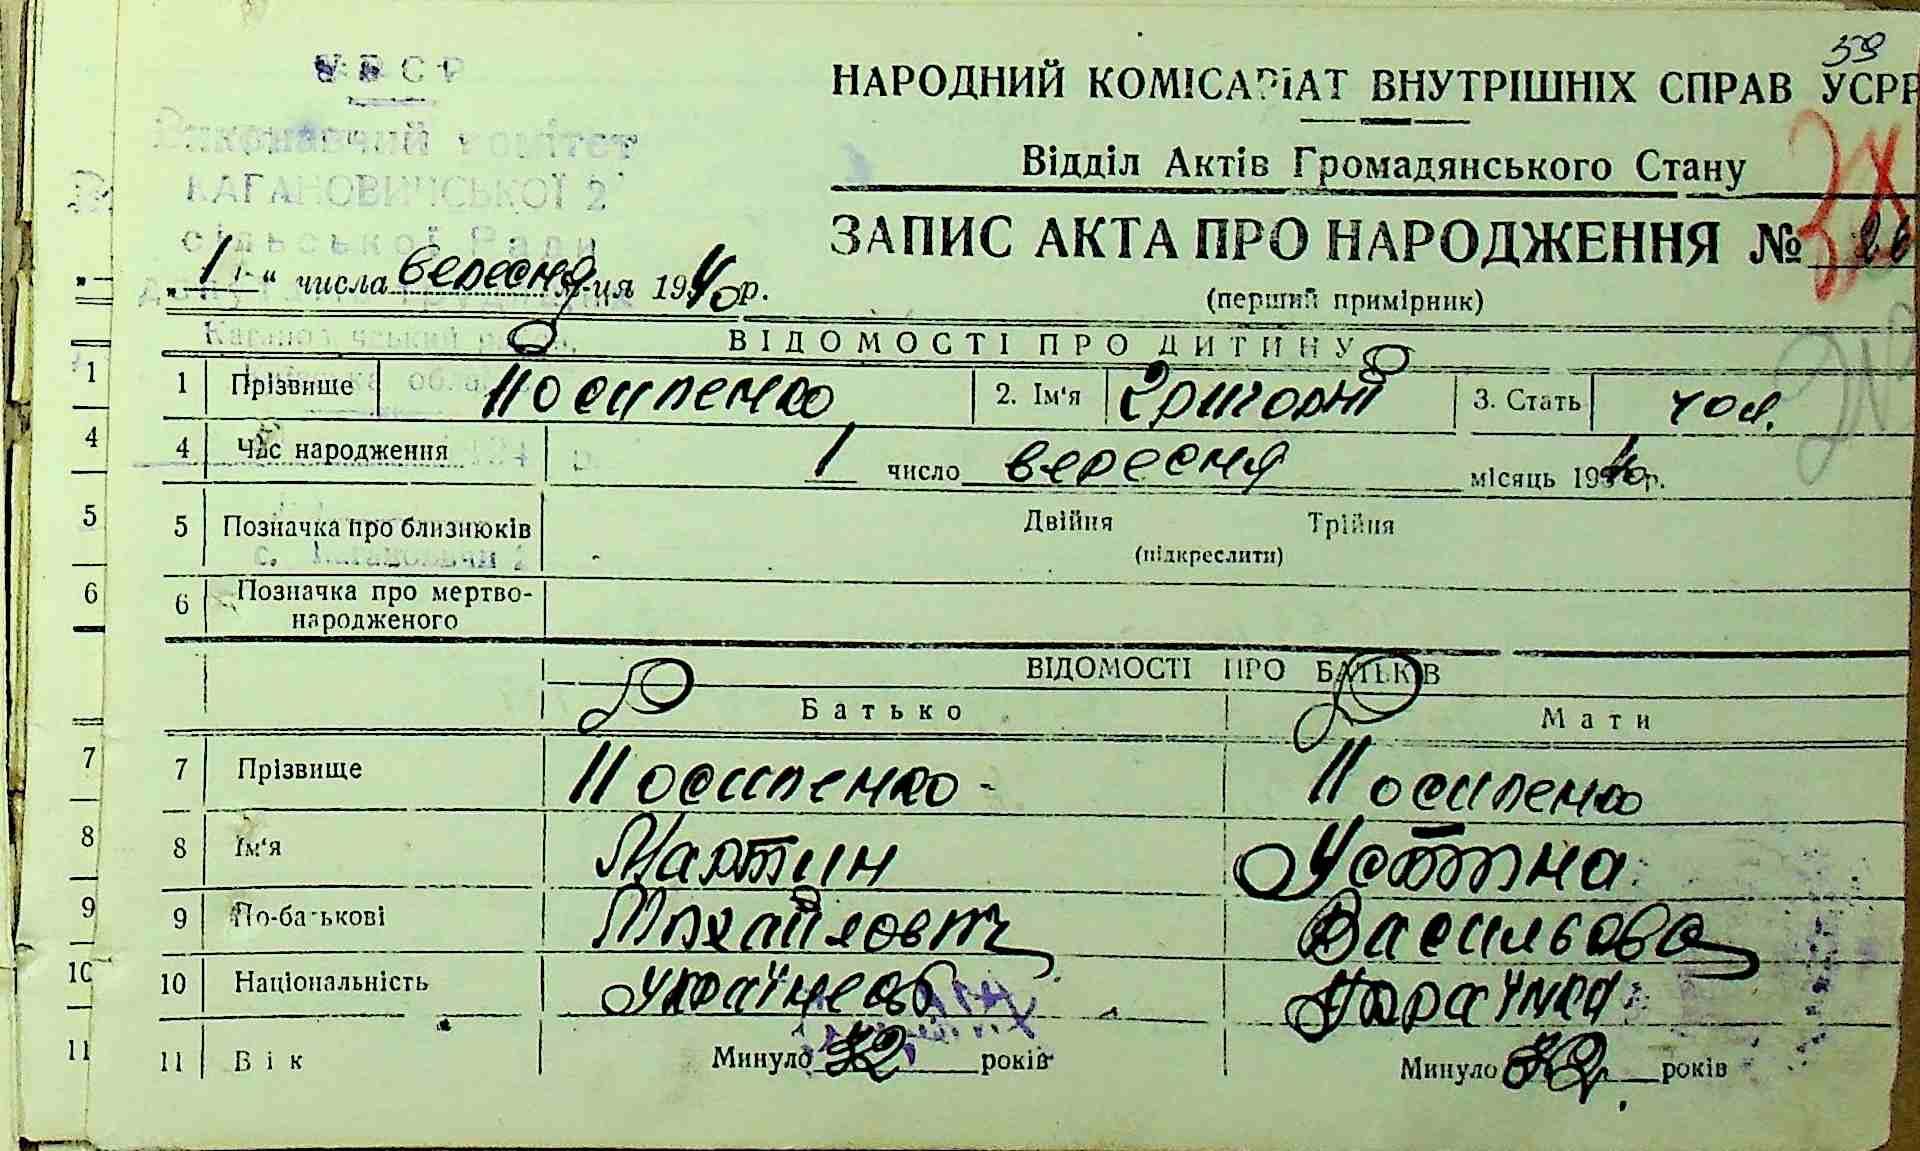 59
УРСР
НАРОДНИЙ КОМІСАРІАТ ВНУТРІШНІХ СПРАВ УСРР
Виконавчий комітет
Відділ Актів Громадянського Стану
КАГАНОВИЧСЬКОЇ 2
сільської Ради
ЗАПИС АКТА ПРО НАРОДЖЕННЯ № 26
„1" числа вересня м-ця 1940 р.
(перший примірник)
ВІДОМОСТІ ПРО ДИТИНУ
1 1 Прізвище Посипенко 2. Ім'я Григорій 3. Стать чол.
4 4 Час народження 1 число вересня місяць 1940 р.
5 5 Позначка про близнюків Двійня Трійня
с. Кагановичи 2 (підкреслити)
6 6 Позначка про мертво-
народженого
ВІДОМОСТІ ПРО БАТЬКІВ
Батько Мати
7 7 Прізвище Посипенко Посипенко
8 8 Ім'я Мартин Устина
9 9 По-батькові Михайлович Васильовна
10 10 Національність українець Українка
11 11 Вік Минуло років Минуло років